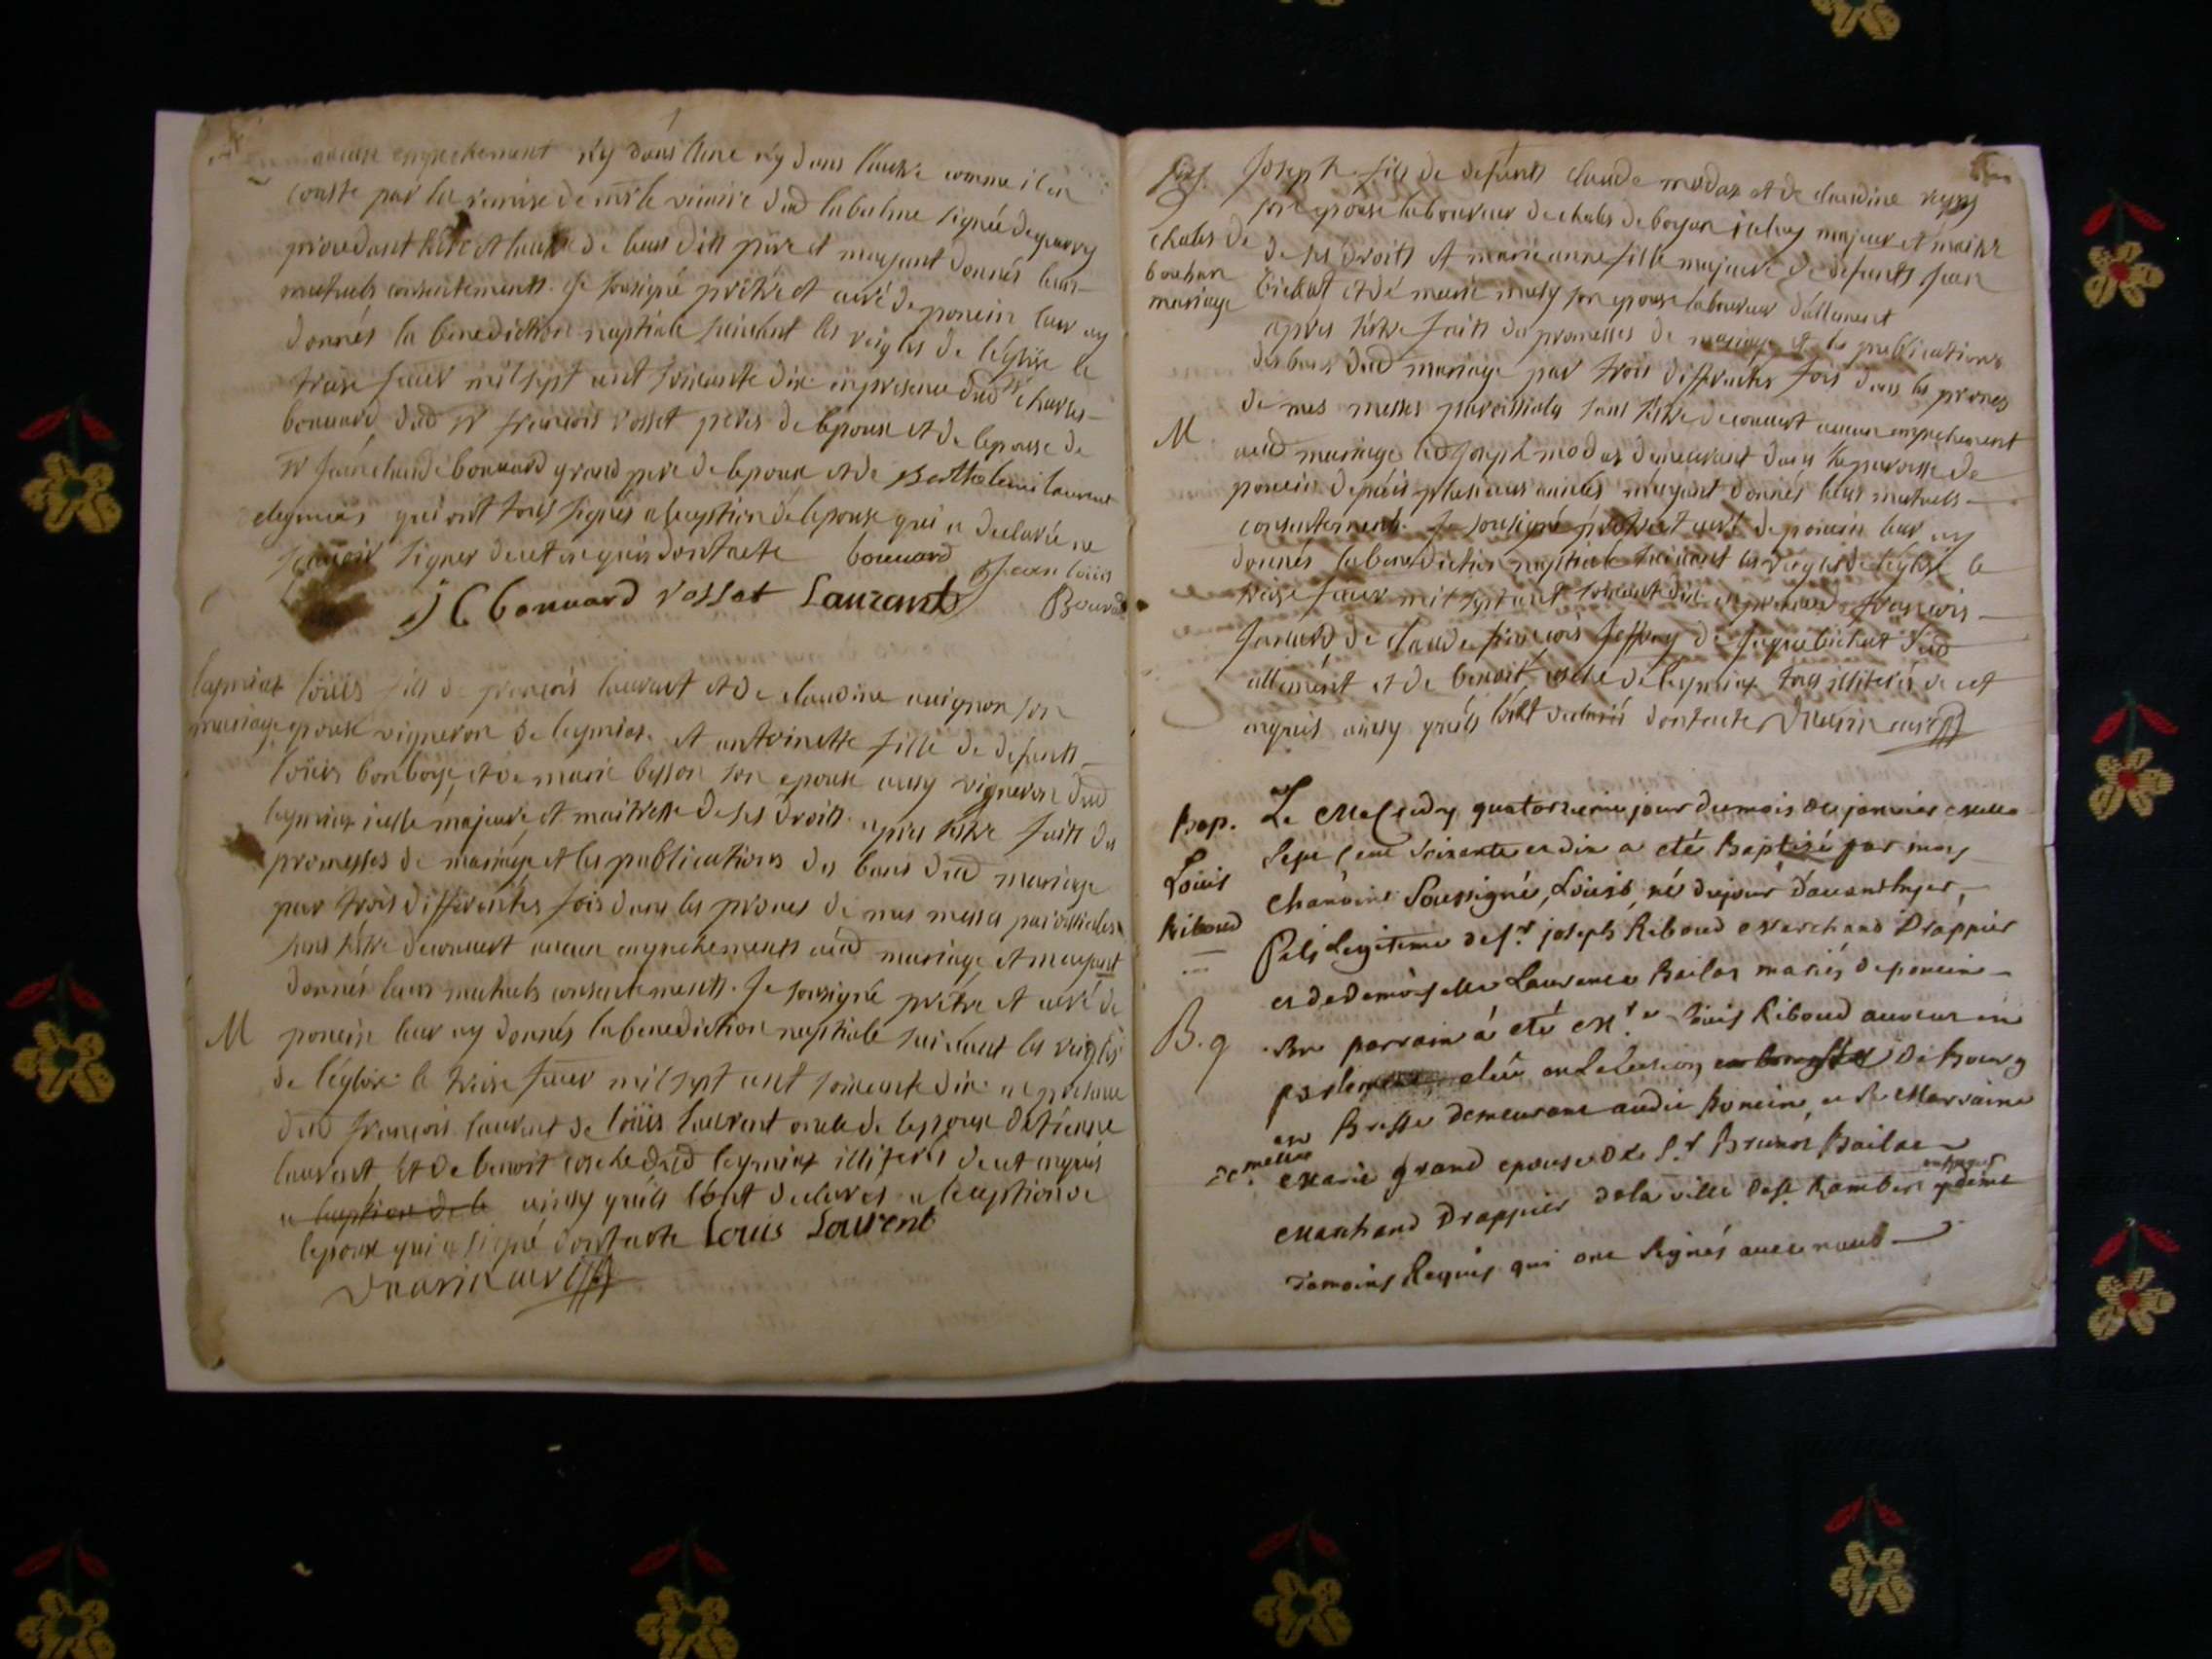 aucun empechement n'y dans l'une n'y dans l'autre comme il en
conste par la remise de mr le vicaire dud labalme signé deguerry
procedant l'un et l'autre de leurs dits père et mayant donnés leurs
mutuels consentements. Je soussigné prêtre et curé de poncin leur ay
donnés la benediction nuptiale suivant les reigles de l'église le
treise janr mil sept cent soixante dix en presence dud Sr charles
bouuard dud Sr françois rosset peres de lepoux et de lepouse de
Sr jean claude bouuard grand pere de lepoux et de Barthelemi laurent
qui ont tous signés a lexeption de lepouse qui a declaré ne
sçavoir signer de ce enquis dont acte bouuard Jean louis
J C bouuard rosset Laurant Bouuard
leymiat louis fils de françois laurent et de claudine auignon son
mariage epouse vigneron de leymiat et antoinette fille de defunts
louis bonboye et de marie besson son epouse aussy vigneron dud
leymiat icelle majeure et maitresse de ses droits apres s'etre faits des
promesses de mariage et les publications des bans dud mariage
par trois differentes fois dans les prones de mes messes paroissiales
sans s'etre decouuert aucun empechements aud mariage et mayant
donnés leurs mutuels consentements. Je soussigné prêtre et curé de
M poncin leur ay donnés la benediction nuptiale suivant les reigles
de l'église le treise janr mil sept cent soixante dix en presence
dud françois laurent de louis laurent oncle de lepoux detienne
laurent et de benoit dud leymiat illiterés de ce enquis
a lexeption de le ainsy quils l'ont declarés a lexeption de
lepoux qui a signé dont acte Louis Laurent
curé
Joseph fils de defunts claude modas et de claudine
son epouse laboureur de chales de icelluy majeur et maitre
chales de de ses droits et marie anne fille majeure de defunts jean
bouhan bichat et de marie son epouse laboureur dallement
mariage apres s'etre faits des promesses de mariage et les publications
des bans dud mariage par trois differentes fois dans les prones
de mes messes paroissiales sans s'etre decouuert aucun empechement
M aud mariage led joseph modas demeurant dans la paroisse de
poncin depuis plusieurs années mayant donnés leurs mutuels
consentements. Je soussigné prêtre et curé de poncin leur ay
donnés la benediction nuptiale suivant les reigles de l'église le
treise janr mil sept cent soixante dix en presence de françois
de claude françois de jaque bichat dud
allement et de benoit de leymiat tous illiterés de ce
enquis ainsy quils l'ont declarés dont acte curé
Bap. Le Mecredy quatorzieme jour du mois de janvier mille
Sept Cent soixante et dix a eté Baptisé par moy
Louis Chanoine Soussigné, Louis, né du jour d'auant hyer,
Riboud Fils Legitime de sr joseph Riboud Marchand Drappier
et de demoiselle Laurence Bailar mariés de poncin
B. g Son parrain à eté Mre Louis Riboud auocat en
parlement eleü en L'election de Bourg
en Bresse demeurant audit poncin, et sa Marraine
demelle Marie grand epouse de Sr Brunot Bailac
Marchand Drappier de la ville de st Rambert
Temoins Requis qui ont signés auec nous